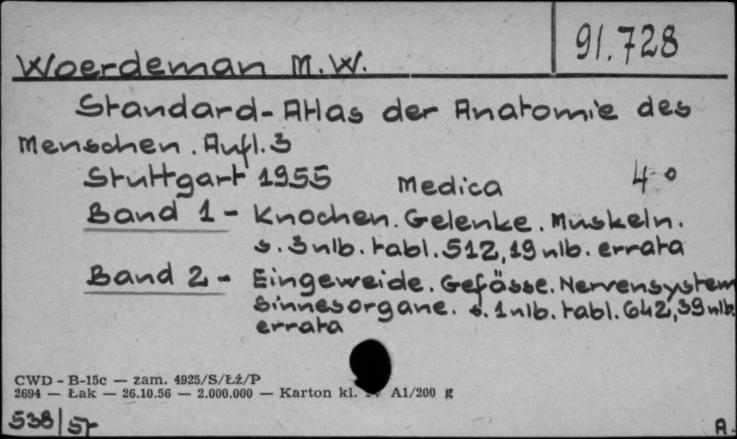 91.728
Woerdeman M.W.
Standard-Atlas der Anatomie des
Menschen. Aufl. 3
Stuttgart 1955 Medica 4°
Band 1 - Knochen. Gelenke. Muskeln.
s. 3 nlb. tabl. 512, 19 nlb. errata
Band 2 - Eingeweide. Gefässe. Nervensystem
Sinnesorgane. s. 1 nlb. tabl. 642, 39 nlb.
errata
CWD - B-15c — zam. 4925/S/Łź/P
2694 — Łak — 26.10.56 — 2.000.000 — Karton kl. A1/200 g
538/57
A.